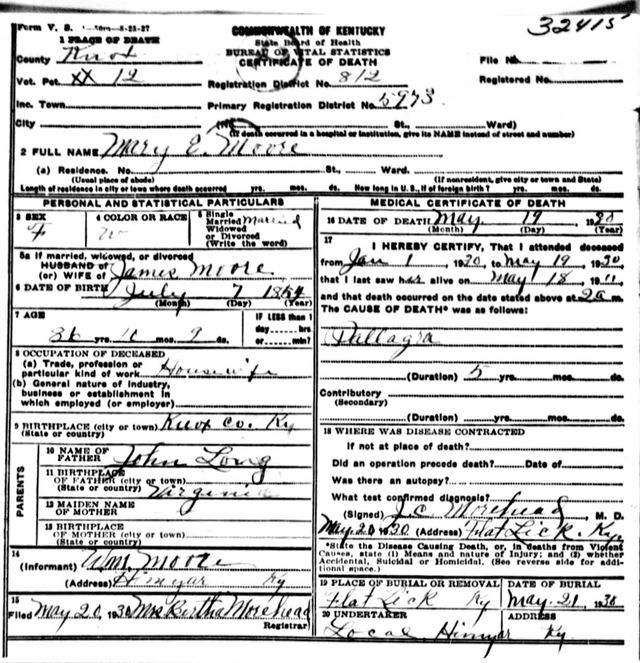 Form V. S. 8-23-27
COMMONWEALTH OF KENTUCKY
State Board of Health
BUREAU OF VITAL STATISTICS
CERTIFICATE OF DEATH
32415
1 PLACE OF DEATH
County Knox
Vot. Pct. XX 12
Inc. Town
City
Registration District No. 812
Primary Registration District No. 5973
File No.
Registered No.
(No. St., Ward)
(If death occurred in a hospital or institution, give its NAME instead of street and number)
2 FULL NAME Mary E. Moore
(a) Residence. No. St., Ward.
(Usual place of abode) (If nonresident, give city or town and State)
Length of residence in city or town where death occurred yrs. mos. ds. How long in U. S., if of foreign birth? yrs. mos. ds.
PERSONAL AND STATISTICAL PARTICULARS
3 SEX F
4 COLOR OR RACE W
5 Single Married Widowed or Divorced (Write the word) Married
5a If married, widowed, or divorced
HUSBAND OF (or) WIFE OF James Moore
6 DATE OF BIRTH July 7
(Month) (Day) (Year)
7 AGE yrs. mos. 9 ds.
IF LESS than 1 day hrs or min?
8 OCCUPATION OF DECEASED
(a) Trade, profession or particular kind of work Housewife
(b) General nature of industry, business or establishment in which employed (or employer)
9 BIRTHPLACE (city or town) Knox Co. Ky
(State or country)
PARENTS
10 NAME OF FATHER John Long
11 BIRTHPLACE OF FATHER (city or town) (State or country) Virginia
12 MAIDEN NAME OF MOTHER
13 BIRTHPLACE OF MOTHER (city or town) (State or country)
14 (Informant) Wm. Moore
(Address) Himyar Ky
15 Filed May 20, 1930 Mrs Bertha Morehead
Registrar
MEDICAL CERTIFICATE OF DEATH
16 DATE OF DEATH May 19, 1930
(Month) (Day) (Year)
17 I HEREBY CERTIFY, That I attended deceased
from Jan 1, 1930, to May 19, 1930
that I last saw her alive on May 18, 19
and that death occurred on the date stated above at 2 a m.
The CAUSE OF DEATH* was as follows:
Pallagra
(Duration) 5 yrs. mos. ds.
Contributory
(Secondary)
(Duration) yrs. mos. ds.
18 WHERE WAS DISEASE CONTRACTED
If not at place of death?
Did an operation precede death? Date of
Was there an autopsy?
What test confirmed diagnosis?
(Signed) J.C. Morehead, M. D.
May 20 1930 (Address) Flat Lick, Ky
*State the Disease Causing Death, or, in deaths from Violent
Causes, state (1) Means and nature of Injury; and (2) whether
Accidental, Suicidal or Homicidal. (See reverse side for additional space.)
19 PLACE OF BURIAL OR REMOVAL Flat Lick Ky
DATE OF BURIAL May 21, 1930
20 UNDERTAKER Local
ADDRESS Himyar Ky